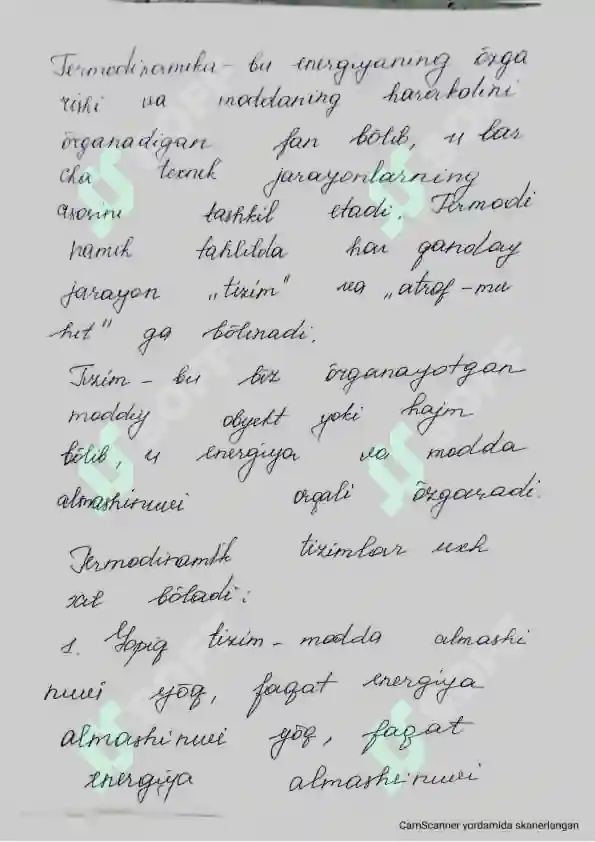 Termodinamika - bu energiyaning ōzga
rishi va moddaning harakatini
ōrganadigan fan bōlib, u bar
cha texnik jarayonlarning
asosini tashkil etadi. Termodi
namik tahlilda har qanday
jarayon „tizim" va „atrof-mu
hit" ga bōlinadi.
Tizim - bu biz ōrganayotgan
moddiy obyekt yoki hajm
bōlib, u energiya va modda
almashinuvi orqali ōzgaradi.
Termodinamik tizimlar uch
xil bōladi:
1. Yopiq tizim - modda almashi
nuvi yōq, faqat energiya
almashinuvi yōq, faqat
energiya almashinuvi
SOFF
SOFF
SOFF
SOFF
SOFF
SOFF
CamScanner yordamida skanerlangan